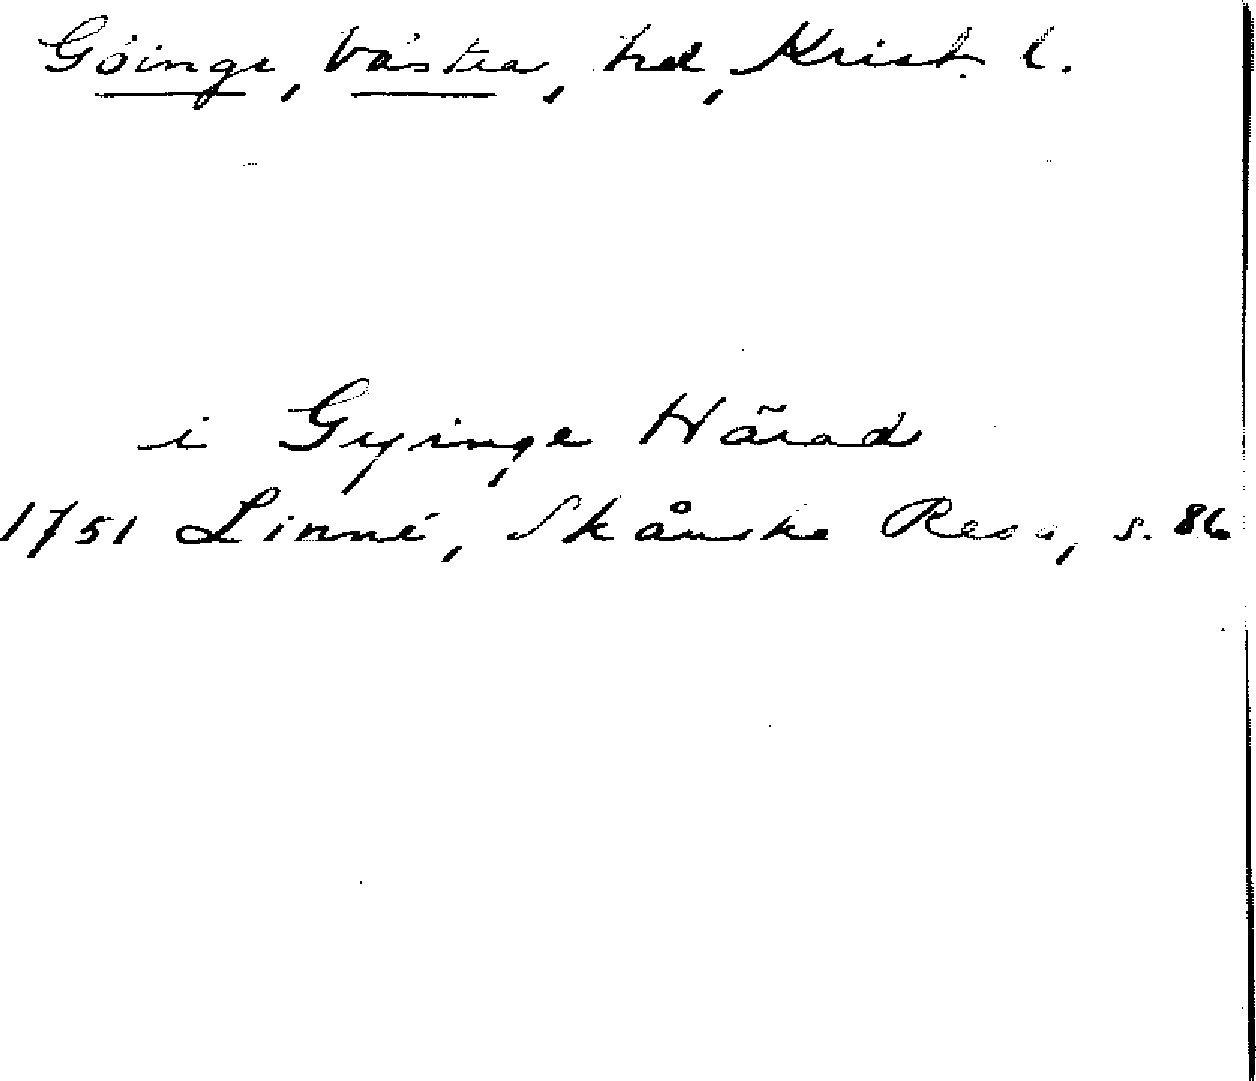 Göinge, Västra, hd, Krist. l.
i Gyinge Härad
1751 Linné, Skånska Resa, s. 86